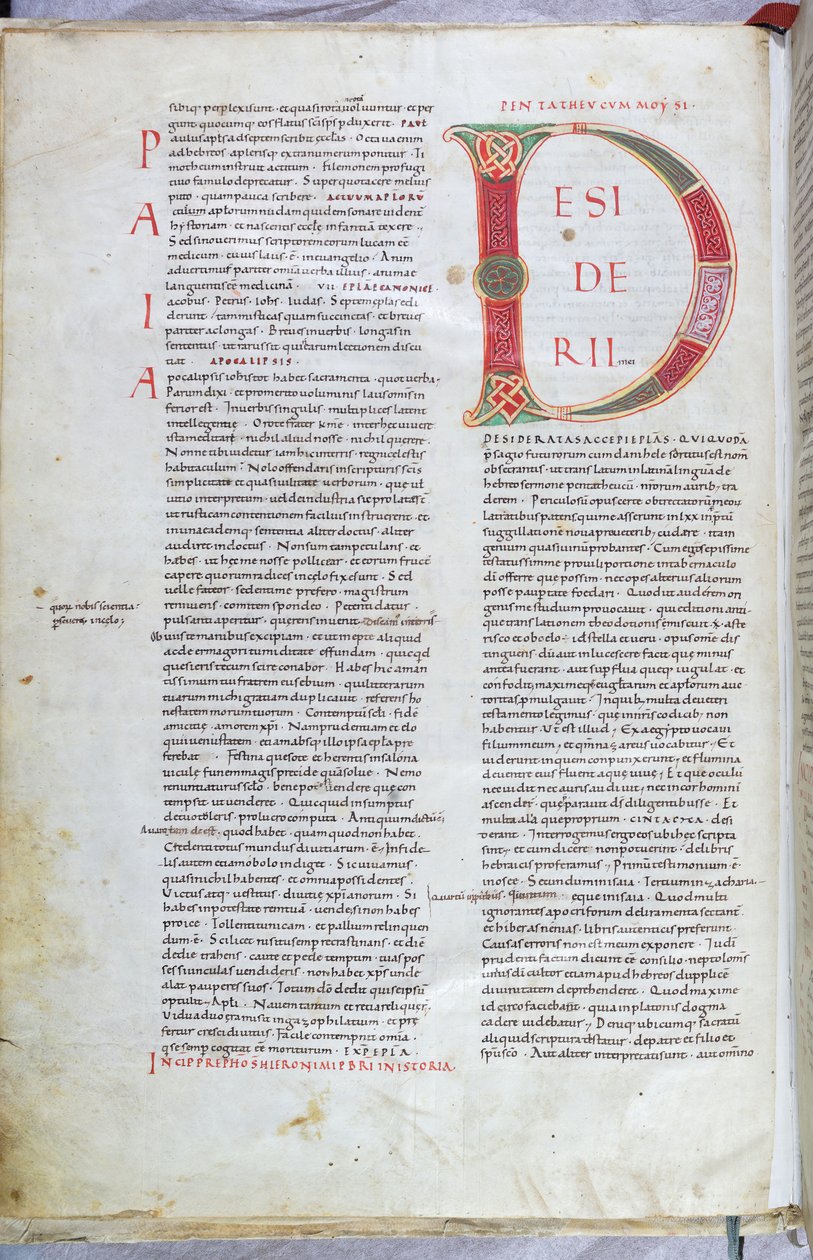 sibiq; perplexi sunt · et quasi rota uoluuntur · et per
gunt quocumq; eos flatus sci sps pduxerit · PAVL
Paulus apls ad septem scribit ecclas · Octaua enim
ad hebreos · a plerisq; extra numerum ponitur · Ti
motheum instruit ac titum · Filemonem pro fugi
tiuo famulo deprecatur · Super quo tacere melius
puto · quam pauca scribere · ACTVVM APLORV
Actuum aplorum nudam quidem sonare uident
hystoriam · et nascentis eccle infantiam texere ·
Sed si nouerimus scriptorem eorum lucam ee
medicum · cuius laus · e · in euangelio · Anim
aduertimus pariter omia uerba illius · animae
languentis ee medicinam · VII EPLAE CANONICE ·
Iacobus · Petrus · Iohs · Iudas · Septem eplas edi
derunt · tam misticas quam succinctas · et breues
pariter ac longas · Breues in uerbis · longas in
sententiis · ut rarus sit qui earum lectionem discu
tiat · APOCALIPSIS ·
Apocalipsis iohis tot habet sacramenta · quot uerba ·
Parum dixi · et pro merito uoluminis laus omis in
ferior est · In uerbis singulis · multiplices latent
intellegentie · Oro te frater kme · inter hec uiuere
ista meditari · nichil aliud nosse · nichil querere ·
Nonne tibi uidetur iam hic in terris · regni celestis
habitaculum · Nolo offendaris in scripturis scis
simplicitate et quasi uilitate uerborum · que uel
uitio interpretum · uel de industria sic prolatae st
ut rusticam contentionem facilius instruerent · et
in una eademq; sententia aliter doctus · aliter
audiret indoctus · Non sum tam petulans · et
habes · ut hec me nosse pollicear · et eorum fruct
capere quorum radices in celo fixe sunt · Sed
uelle fateor · sedenti me prefero · magistrum
renuens · comitem spondeo · Petenti datur ·
pulsanti aperitur · querens inuenit · Discam in terris
– quor nobis scientia
perseueret in celo;
Obuiis te manibus excipiam · et ut inepte aliquid
ac de ermagori tumiditate effundam · quicqd
quesieris tecum scire conabor · Habes hic aman
tissimum tui fratrem eusebium · qui litterarum
tuarum michi gratiam duplicauit · referens ho
nestatem morum tuorum · Contemptu scli · fide
amicitie · amorem xpi · Nam prudentiam et elo
quii uenustatem · etiam absq; illo ipsa epla pre
ferebat · Festina queso te et herentis in salo na
uicule funem magis precide quam solue · Nemo
renuntiaturus sclo · bene potest uendere que con
tempsit ut uenderet · Quicquid in sumptus
de tuo tuleris · pro lucro computa · Antiquum dictum e;
Auaro tam deest · quod habet · quam quod non habet ·
Credenti totus mundus diuitiarum · e · Infide
lis autem etiam obolo indiget · Sic uiuamus ·
quasi nichil habentes · et omnia possidentes ·
Victus atq; uestitus · diuitie xpianorum · Si
habes in potestate rem tuam · uende · si non habes
proice · Tollenti tunicam · et pallium relinquen
dum · e · Scilicet nisi tu semp recrastinans · et die
de die trahens · caute et pedetemptim · tuas pos
sessiunculas uendideris · non habet xps unde
alat pauperes suos · Totum do dedit qui se ipsu
optulit · Apli · Nauem tantum et retia reliquer ·
Vidua duo era misit in gazophilatium · et pre
fertur cresi diuitiis · Facile contempnit omia ·
q se semp cogitat ee moriturum · EXP EPLA ·
INCIP PREPHO S HIERONIMI PBRI IN ISTORIA ·
PENTATHEVCVM MOYSI ·
DESI
DE
RII mei
DESIDERATAS ACCEPI EPLAS · QVI QVODA
psagio futurorum cum danihele sortitus est nom
obsecrantis · ut translatum in latina lingua de
hebreo sermone pentatheucu · nrorum aurib; tra
derem · Periculosu opus certe obtrectatoru meor
latratibus patens · qui me asserunt in lxx inptu
suggillatione noua pro ueterib; cudare · ita in
genium quasi uinu probantes · Cum ego sepissime
testatus sim me pro uili portione in tabernaculo
di offerre que possim · nec opes alterius aliorum
posse paupertate foedari · Quod ut auderem ori
genis me studium prouocauit · qui editioni anti
que translationem theodotionis emiscuit · aste
risco et obelo · id est stella et ueru · opus ome dis
tinguens · du aut inlucescere facit que minus
antea fuerant · aut supflua queq; iugulat · et
confodit · maxime q; eugltarum et aplorum auc
toritas pmulgauit · In quib; multa de ueteri
testamento legimus · que in nris codicib; non
habentur · Vt est illud · Ex aegypto uocaui
filium meum · et qm nazareus uocabitur · Et
uiderunt in quem conpunxerunt · et flumina
de uentre eius fluent aque uiue · Et que oculi
nec uidit nec auris audiuit · nec in cor homini
ascender · que parauit ds diligentibus se · Et
multa alia que proprium · CINTACMA · desi
derant · Interrogemus ergo eos ubi hec scripta
sint · et cum dicere non potuerint · de libris
hebraicis proferamus · Primu testimonium · e ·
in osee · Secundum in isaia · Tertium in zacharia ·
Quartu in puerbiis · Quintum eque in isaia · Quod multi
ignorantes apocriforum deliramenta sectant
et hiberas nenias · libris autenticis preferunt ·
Causas erroris non est meum exponere · Iudi
prudenti factum dicunt ee consilio · ne ptolom
unius di cultor etiam apud hebreos dupplice
diuinitatem deprehenderet · Quod maxime
idcirco faciebant · quia in platonis dogma
cadere uidebatur · Deniq; ubicumq; sacratu
aliquid scriptura testatur · de patre et filio et
spu sco · Aut aliter interpretati sunt · aut omino